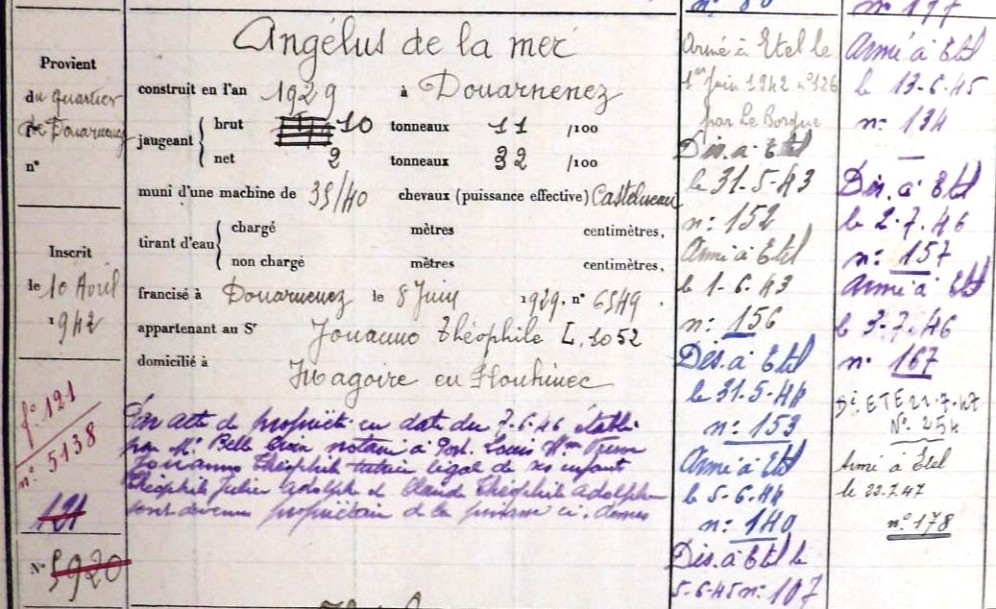 Provient
du quartier
de Douarnenez
n°
Inscrit
le 10 Avril
1942
f° 121
n° 5138
121
N° 5920
Angélus de la mer
construit en l'an 1929 à Douarnenez
jaugeant { brut 10 tonneaux 11 /100
net 2 tonneaux 32 /100
muni d'une machine de 35/40 chevaux (puissance effective)
tirant d'eau { chargé mètres centimètres,
non chargé mètres centimètres,
francisé à Douarnenez le 8 Juin 1929, n° 6549.
appartenant au Sr Jouanno Théophile L, 1052
domicilié à Magoire en Plouhinec
Par acte de propriété en date du 7-6-46 établi
par Me Belle Croix notaire à Port Louis Mme Veuve
Jouanno Théophile tutrice légal de ses enfant
Théophile Julie Adolphe et Claude Théophile Adolphe
sont devenus propriétaire de la ci-dessus
Armé à Etel le
1er Juin 1942 n° 126
par Le Borgne
Dés. à Etel
le 31-5-43
n: 152
Armé à Etel
le 1-6-43
n: 156
Dés. à Etel
le 31.5-44
n: 153
Armé à Etel
le 5-6-44
n: 140
Dés. à Etel le
5-6-45 n: 107
n: 177
Armé à Etel
le 13-6-45
n: 134
Dés. à Etel
le 2-7-46
n: 157
Armé à Etel
le 3-7-46
n° 167
Dé ETEL 21-7-47
N° 254
Armé à Etel
le 22.7.47
n° 178